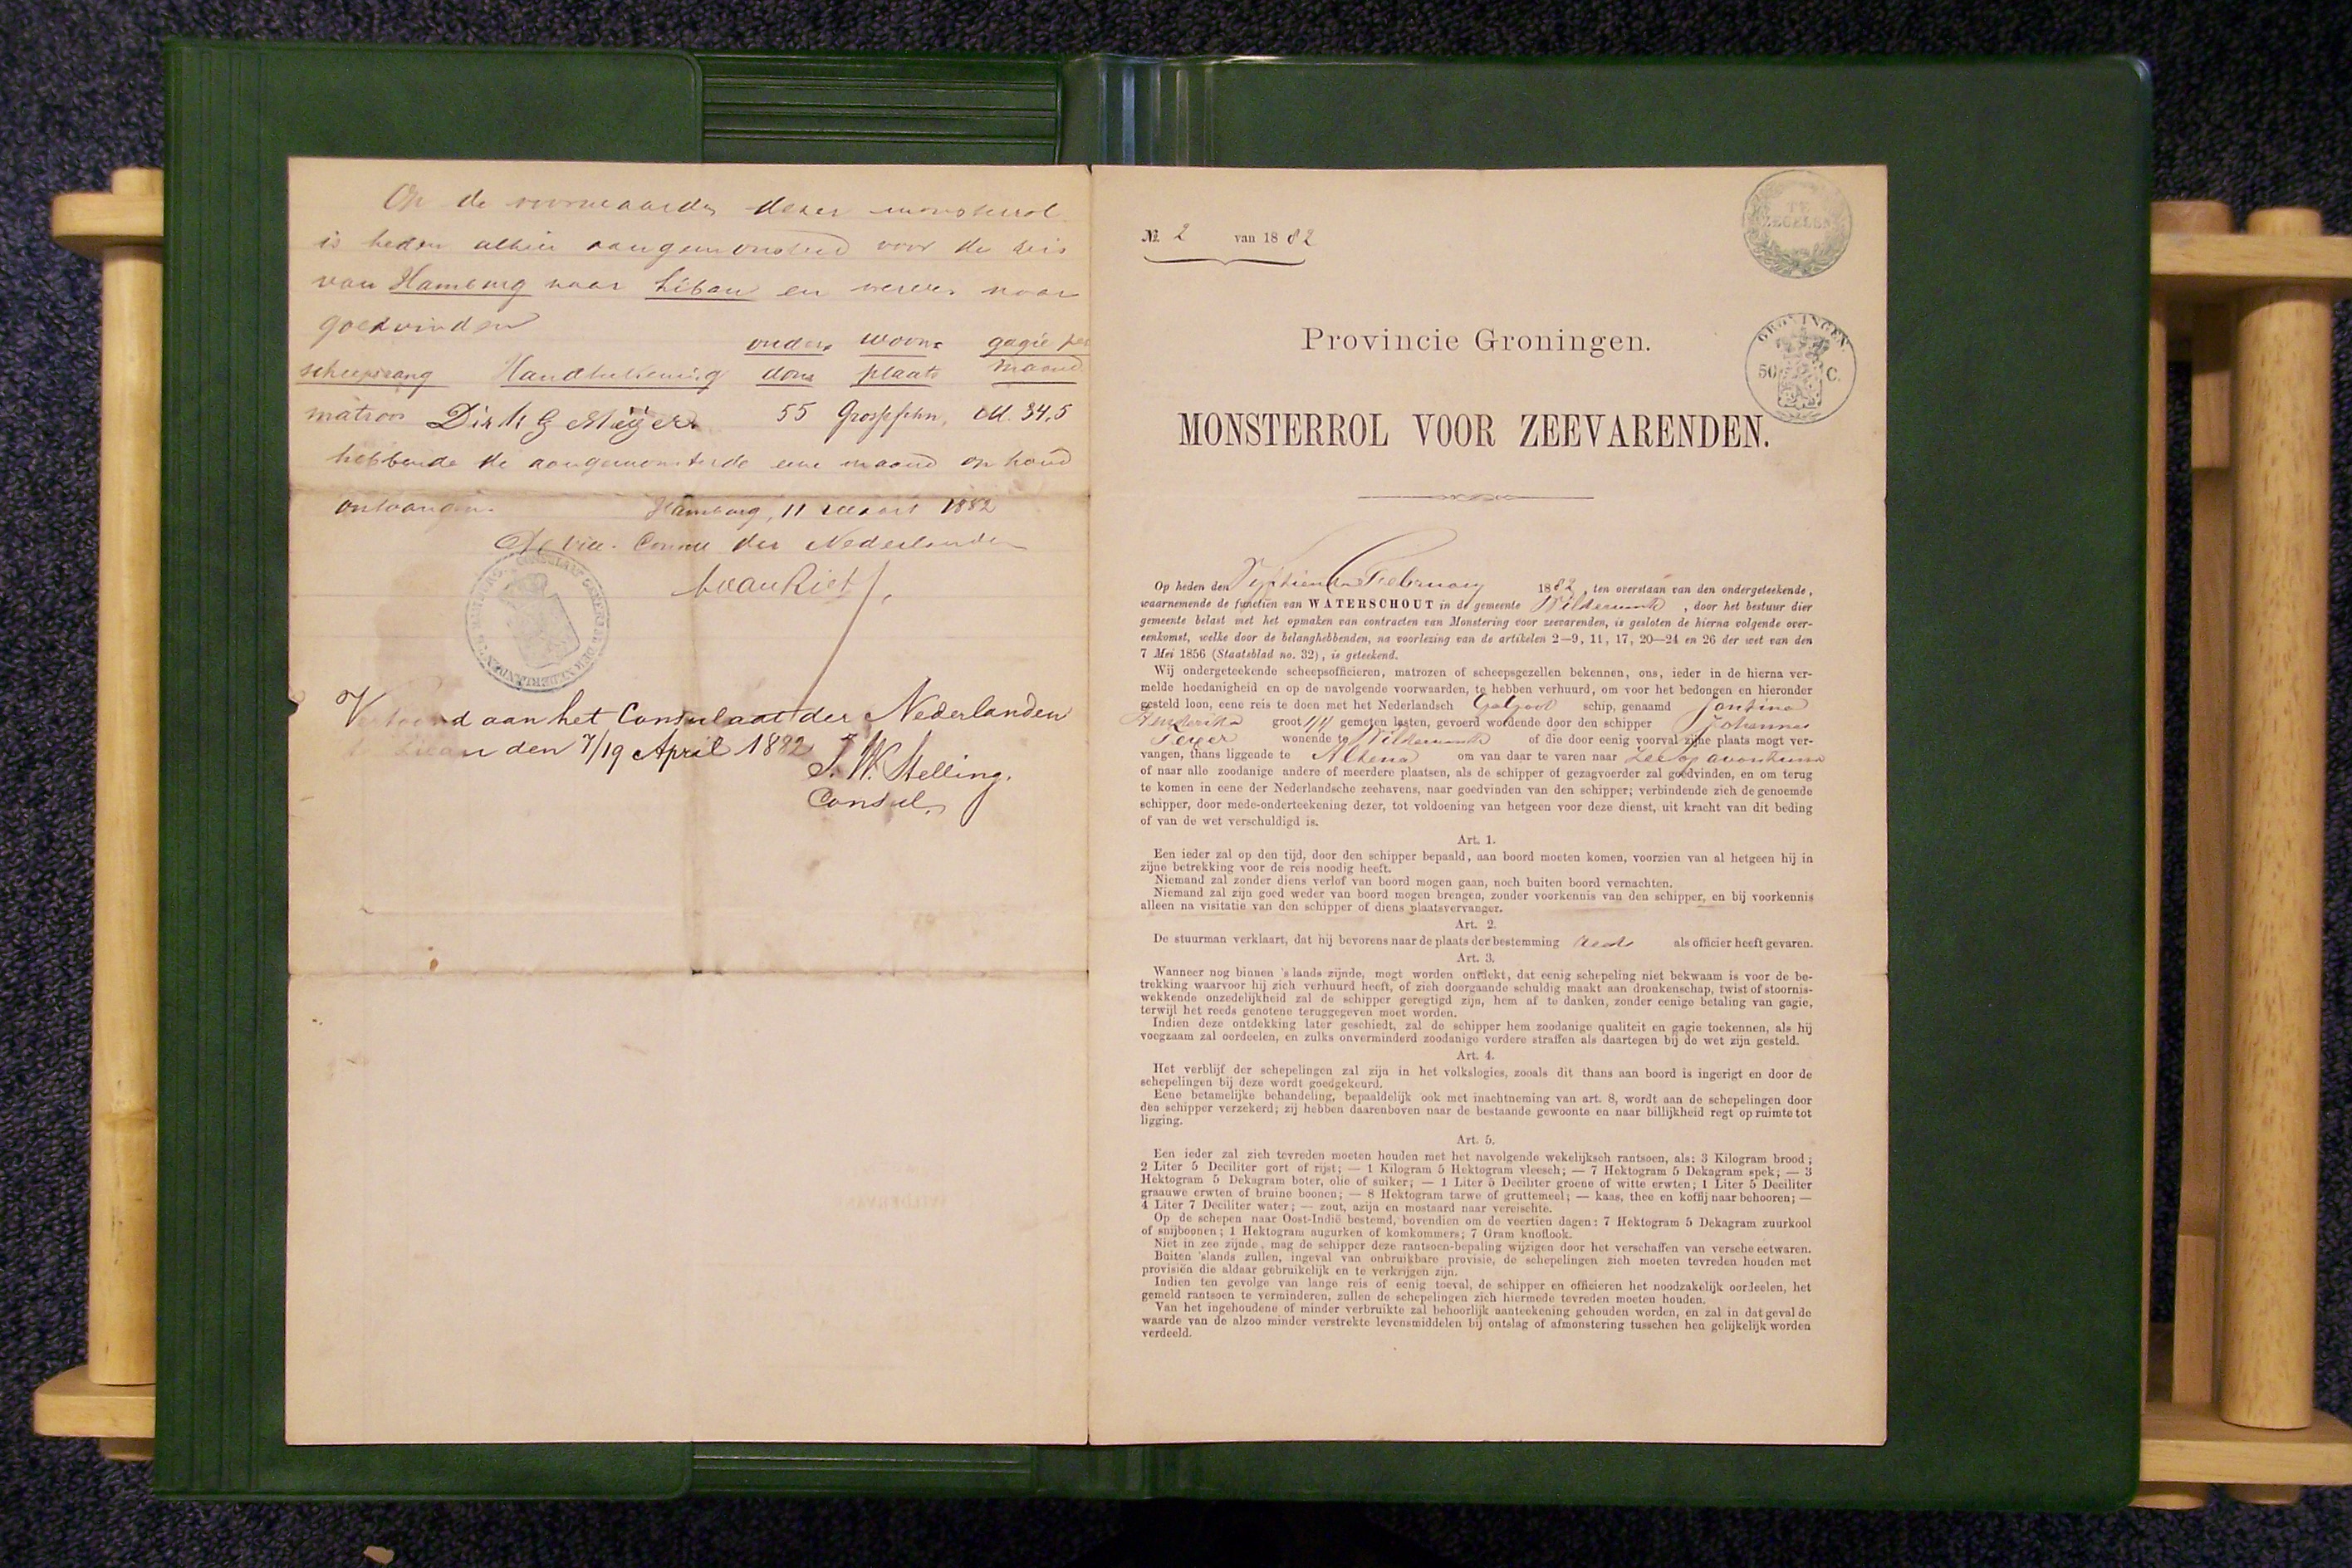 Op de voorwaarden dezer monsterrol
is heden alhier aangemonsterd voor de reis
van Hamburg naar Libau en verder naar
goedvinden
ouder- woon- gagie per
scheepsrang Handteekening dom plaats maand
matroos Dirk G Meijer 55 Grossefehn, M. 34,5
hebbende de aangemonsterde eene maand op hand
ontvangen. Hamburg, 11 Maart 1882
De Vice-Consul der Nederlanden
Vertoond aan het Consulaat der Nederlanden
te Libau den 7/19 April 1882
J. W. Stelling.
Consul.
TE
ZEGELEN
No. 2 van 1882
GRONINGEN.
50 C.
Provincie Groningen.
MONSTERROL VOOR ZEEVARENDEN.
Op heden den Vijftienden February 1882, ten overstaan van den ondergeteekende,
waarnemende de functien van WATERSCHOUT in de gemeente Wildervank, door het bestuur dier
gemeente belast met het opmaken van contracten van Monstering voor zeevarenden, is gesloten de hierna volgende over-
eenkomst, welke door de belanghebbenden, na voorlezing van de artikelen 2—9, 11, 17, 20—24 en 26 der wet van den
7 Mei 1856 (Staatsblad no. 32), is geteekend.
Wij ondergeteekende scheepsofficieren, matrozen of scheepsgezellen bekennen, ons, ieder in de hierna ver-
melde hoedanigheid en op de navolgende voorwaarden, te hebben verhuurd, om voor het bedongen en hieronder
gesteld loon, eene reis te doen met het Nederlandsch schip, genaamd Jantina
Henderika groot 44 gemeten lasten, gevoerd wordende door den schipper Johannes
wonende te Wildervank of die door eenig voorval zijne plaats mogt ver-
vangen, thans liggende te Altena om van daar te varen naar Zee op avontuur
of naar alle zoodanige andere of meerdere plaatsen, als de schipper of gezagvoerder zal goedvinden, en om terug
te komen in eene der Nederlandsche zeehavens, naar goedvinden van den schipper; verbindende zich de genoemde
schipper, door mede-onderteekening dezer, tot voldoening van hetgeen voor deze dienst, uit kracht van dit beding
of van de wet verschuldigd is.
Art. 1.
Een ieder zal op den tijd, door den schipper bepaald, aan boord moeten komen, voorzien van al hetgeen hij in
zijne betrekking voor de reis noodig heeft.
Niemand zal zonder diens verlof van boord mogen gaan, noch buiten boord vernachten.
Niemand zal zijn goed weder van boord mogen brengen, zonder voorkennis van den schipper, en bij voorkennis
alleen na visitatie van den schipper of diens plaatsvervanger.
Art. 2.
De stuurman verklaart, dat hij bevorens naar de plaats der bestemming als officier heeft gevaren.
Art. 3.
Wanneer nog binnen 's lands zijnde, mogt worden ontdekt, dat eenig schepeling niet bekwaam is voor de be-
trekking waarvoor hij zich verhuurd heeft, of zich doorgaande schuldig maakt aan dronkenschap, twist of stoornis-
wekkende onzedelijkheid zal de schipper geregtigd zijn, hem af te danken, zonder eenige betaling van gagie,
terwijl het reeds genotene teruggegeven moet worden.
Indien deze ontdekking later geschiedt, zal de schipper hem zoodanige qualiteit en gagie toekennen, als hij
voegzaam zal oordeelen, en zulks onverminderd zoodanige verdere straffen als daartegen bij de wet zijn gesteld.
Art. 4.
Het verblijf der schepelingen zal zijn in het volkslogies, zooals dit thans aan boord is ingerigt en door de
schepelingen bij deze wordt goedgekeurd.
Eene betamelijke behandeling, bepaaldelijk ook met inachtneming van art. 8, wordt aan de schepelingen door
den schipper verzekerd; zij hebben daarenboven naar de bestaande gewoonte en naar billijkheid regt op ruimte tot
ligging.
Art. 5.
Een ieder zal zich tevreden moeten houden met het navolgende wekelijksch rantsoen, als: 3 Kilogram brood;
2 Liter 5 Deciliter gort of rijst; — 1 Kilogram 5 Hektogram vleesch; — 7 Hektogram 5 Dekagram spek; — 3
Hektogram 5 Dekagram boter, olie of suiker; — 1 Liter 5 Deciliter groene of witte erwten; 1 Liter 5 Deciliter
graauwe erwten of bruine boonen; — 8 Hektogram tarwe of gruttemeel; — kaas, thee en koffij naar behooren; —
4 Liter 7 Deciliter water; — zout, azijn en mostaard naar vereischte.
Op de schepen naar Oost-Indië bestemd, bovendien om de veertien dagen: 7 Hektogram 5 Dekagram zuurkool
of snijboonen; 1 Hektogram augurken of komkommers; 7 Gram knoflook.
Niet in zee zijnde, mag de schipper deze rantsoen-bepaling wijzigen door het verschaffen van versche eetwaren.
Buiten 'slands zullen, ingeval van onbruikbare provisie, de schepelingen zich moeten tevreden houden met
provisiën die aldaar gebruikelijk en te verkrijgen zijn.
Indien ten gevolge van lange reis of eenig toeval, de schipper en officieren het noodzakelijk oordeelen, het
gemeld rantsoen te verminderen, zullen de schepelingen zich hiermede tevreden moeten houden.
Van het ingehoudene of minder verbruikte zal behoorlijk aanteekening gehouden worden, en zal in dat geval de
waarde van de alzoo minder verstrekte levensmiddelen bij ontslag of afmonstering tusschen hen gelijkelijk worden
verdeeld.